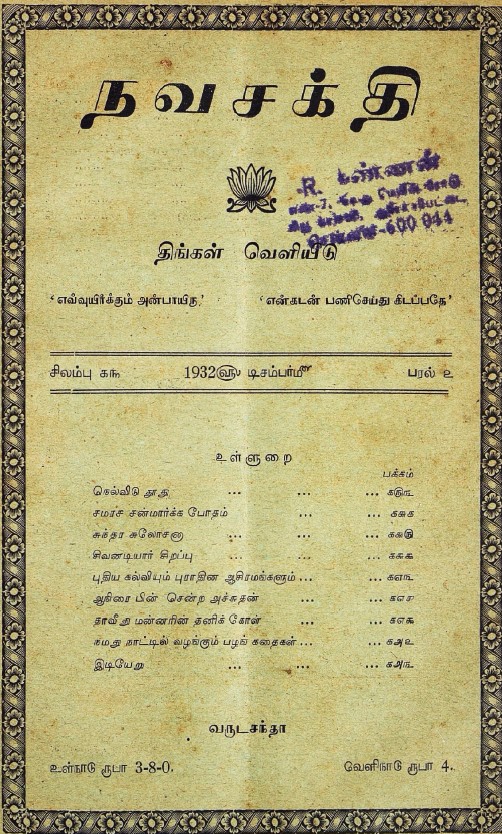 நவசக்தி
R. கண்ணன்
600 044
திங்கள் வெளியீடு
'எவ்வுயிர்க்கும் அன்பாயிரு' 'என்கடன் பணிசெய்து கிடப்பதே'
சிலம்பு கரு 1932௵ டிசம்பர்௴ பரல் உ
உள்ளுறை
பக்கம்
நெல்விடு தூது ... ... ...
சமரச சன்மார்க்க போதம் ... ...
சுந்தர சுலோசனா ... ... ...
சிவனடியார் சிறப்பு ... ... ...
புதிய கல்வியும் புராதின ஆசிரமங்களும் ... ...
ஆதிரை பின் சென்ற அச்சுதன் ... ...
தாவீது மன்னரின் தனிக் கோள் ... ...
நமது நாட்டில் வழங்கும் பழங் கதைகள் ... ... கஅஉ
இடியேறு ... ... ...
வருடசந்தா
உள்நாடு ரூபா 3-8-0. வெளிநாடு ரூபா 4.